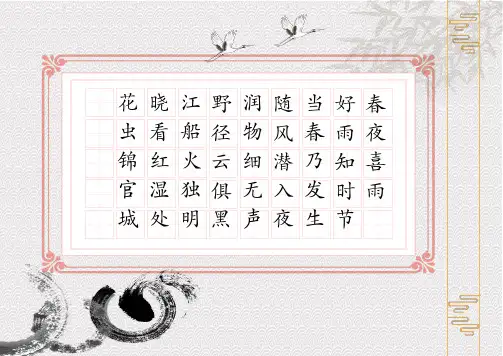 春夜喜雨
好雨知时节
当春乃发生
随风潜入夜
润物细无声
野径云俱黑
江船火独明
晓看红湿处
花虫锦官城